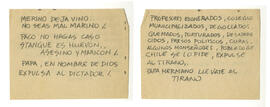 MERINO DEJA VINO.
NO SEAS MAL MARINO!
PACO NO HAGAS CASO
STANGUE ES HUEVON,
ASESINO Y MARICON!
PAPA, EN NOMBRE DE DIOS
EXPULSA AL DICTADOR!
PROFESORES EXONERADOS, COLEGIOS
MUNICIPALIZADOS, DEGOLLADOS,
QUEMADOS, TORTURADOS, DESAPARE
CIDOS, PRESOS POLITICOS, CURAS,
ALGUNOS MONSEÑORES, POBLADORES
CHILE SE LO PIDE, EXPULSE
AL TIRANO,
PAPA HERMANO LLEVATE AL
TIRANO